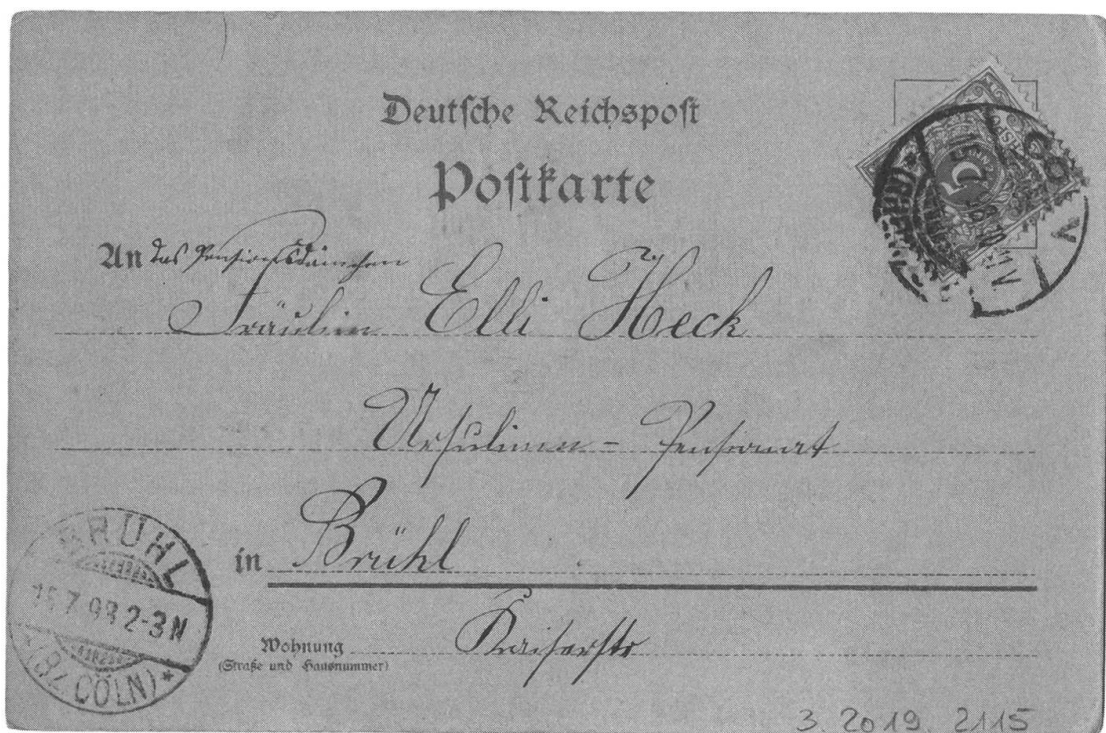 Deutsche Reichspost
Postkarte
An das Pensionsdämchen
Fräulein Elli Heck
Ursulinen-Pensionat
in Brühl
Wohnung Kaiserstr
(Straße und Hausnummer)
BRÜHL
15.7.98 2-3N
*(BZ. CÖLN)*
5
3. 2019. 2115